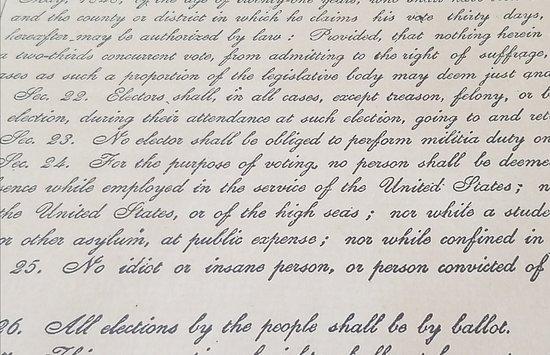 May, 1848, of the age of twenty-one years, who shall have
and the county or district in which he claims his vote thirty days,
hereafter may be authorized by law: Provided, that nothing herein
a two-thirds concurrent vote, from admitting to the right of suffrage,
ases as such a proportion of the legislative body may deem just and
Sec. 22. Electors shall, in all cases, except treason, felony, or b
election, during their attendance at such election, going to and ret
Sec. 23. No elector shall be obliged to perform militia duty on
Sec. 24. For the purpose of voting, no person shall be deeme
sence while employed in the service of the United States; n
the United States, or of the high seas; nor while a stude
or other asylum, at public expense; nor while confined in
25. No idiot or insane person, or person convicted of
26. All elections by the people shall be by ballot.